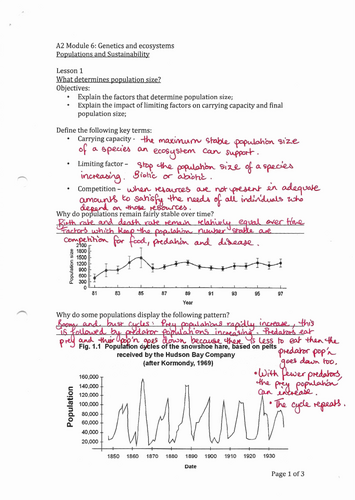 A2 Module 6: Genetics and ecosystems
Populations and Sustainability
Lesson 1
What determines population size?
Objectives:
• Explain the factors that determine population size;
• Explain the impact of limiting factors on carrying capacity and final
population size;
Define the following key terms:
• Carrying capacity - the maximum stable population size
of a species an ecosystem can support.
• Limiting factor – Stop the population size of a species
increasing. Biotic or abiotic.
• Competition – when resources are not present in adequate
amounts to satisfy the needs of all individuals who
depend on those resources.
Why do populations remain fairly stable over time?
Birth rate and death rate remain relatively equal over time
Factors which keep the population number stable are
competition for food, predation and disease.
Population size
81 83 85 87 89 91 93 95 97
Year
Why do some populations display the following pattern?
Boom and bust cycles. Prey populations rapidly increase, this
is followed by predator populations increasing. Predators eat
prey and their pop'n goes down because there is less to eat then the
predator pop'n
goes down too.
Fig. 1.1 Population cycles of the snowshoe hare, based on pelts
received by the Hudson Bay Company
(after Kormondy, 1969)
• With fewer predators,
the prey population
can increase.
• The cycle repeats.
Population
160,000
140,000
120,000
100,000
80,000
60,000
40,000
20,000
1850 1860 1870 1880 1890 1900 1910 1920 1930
Date
Page 1 of 3